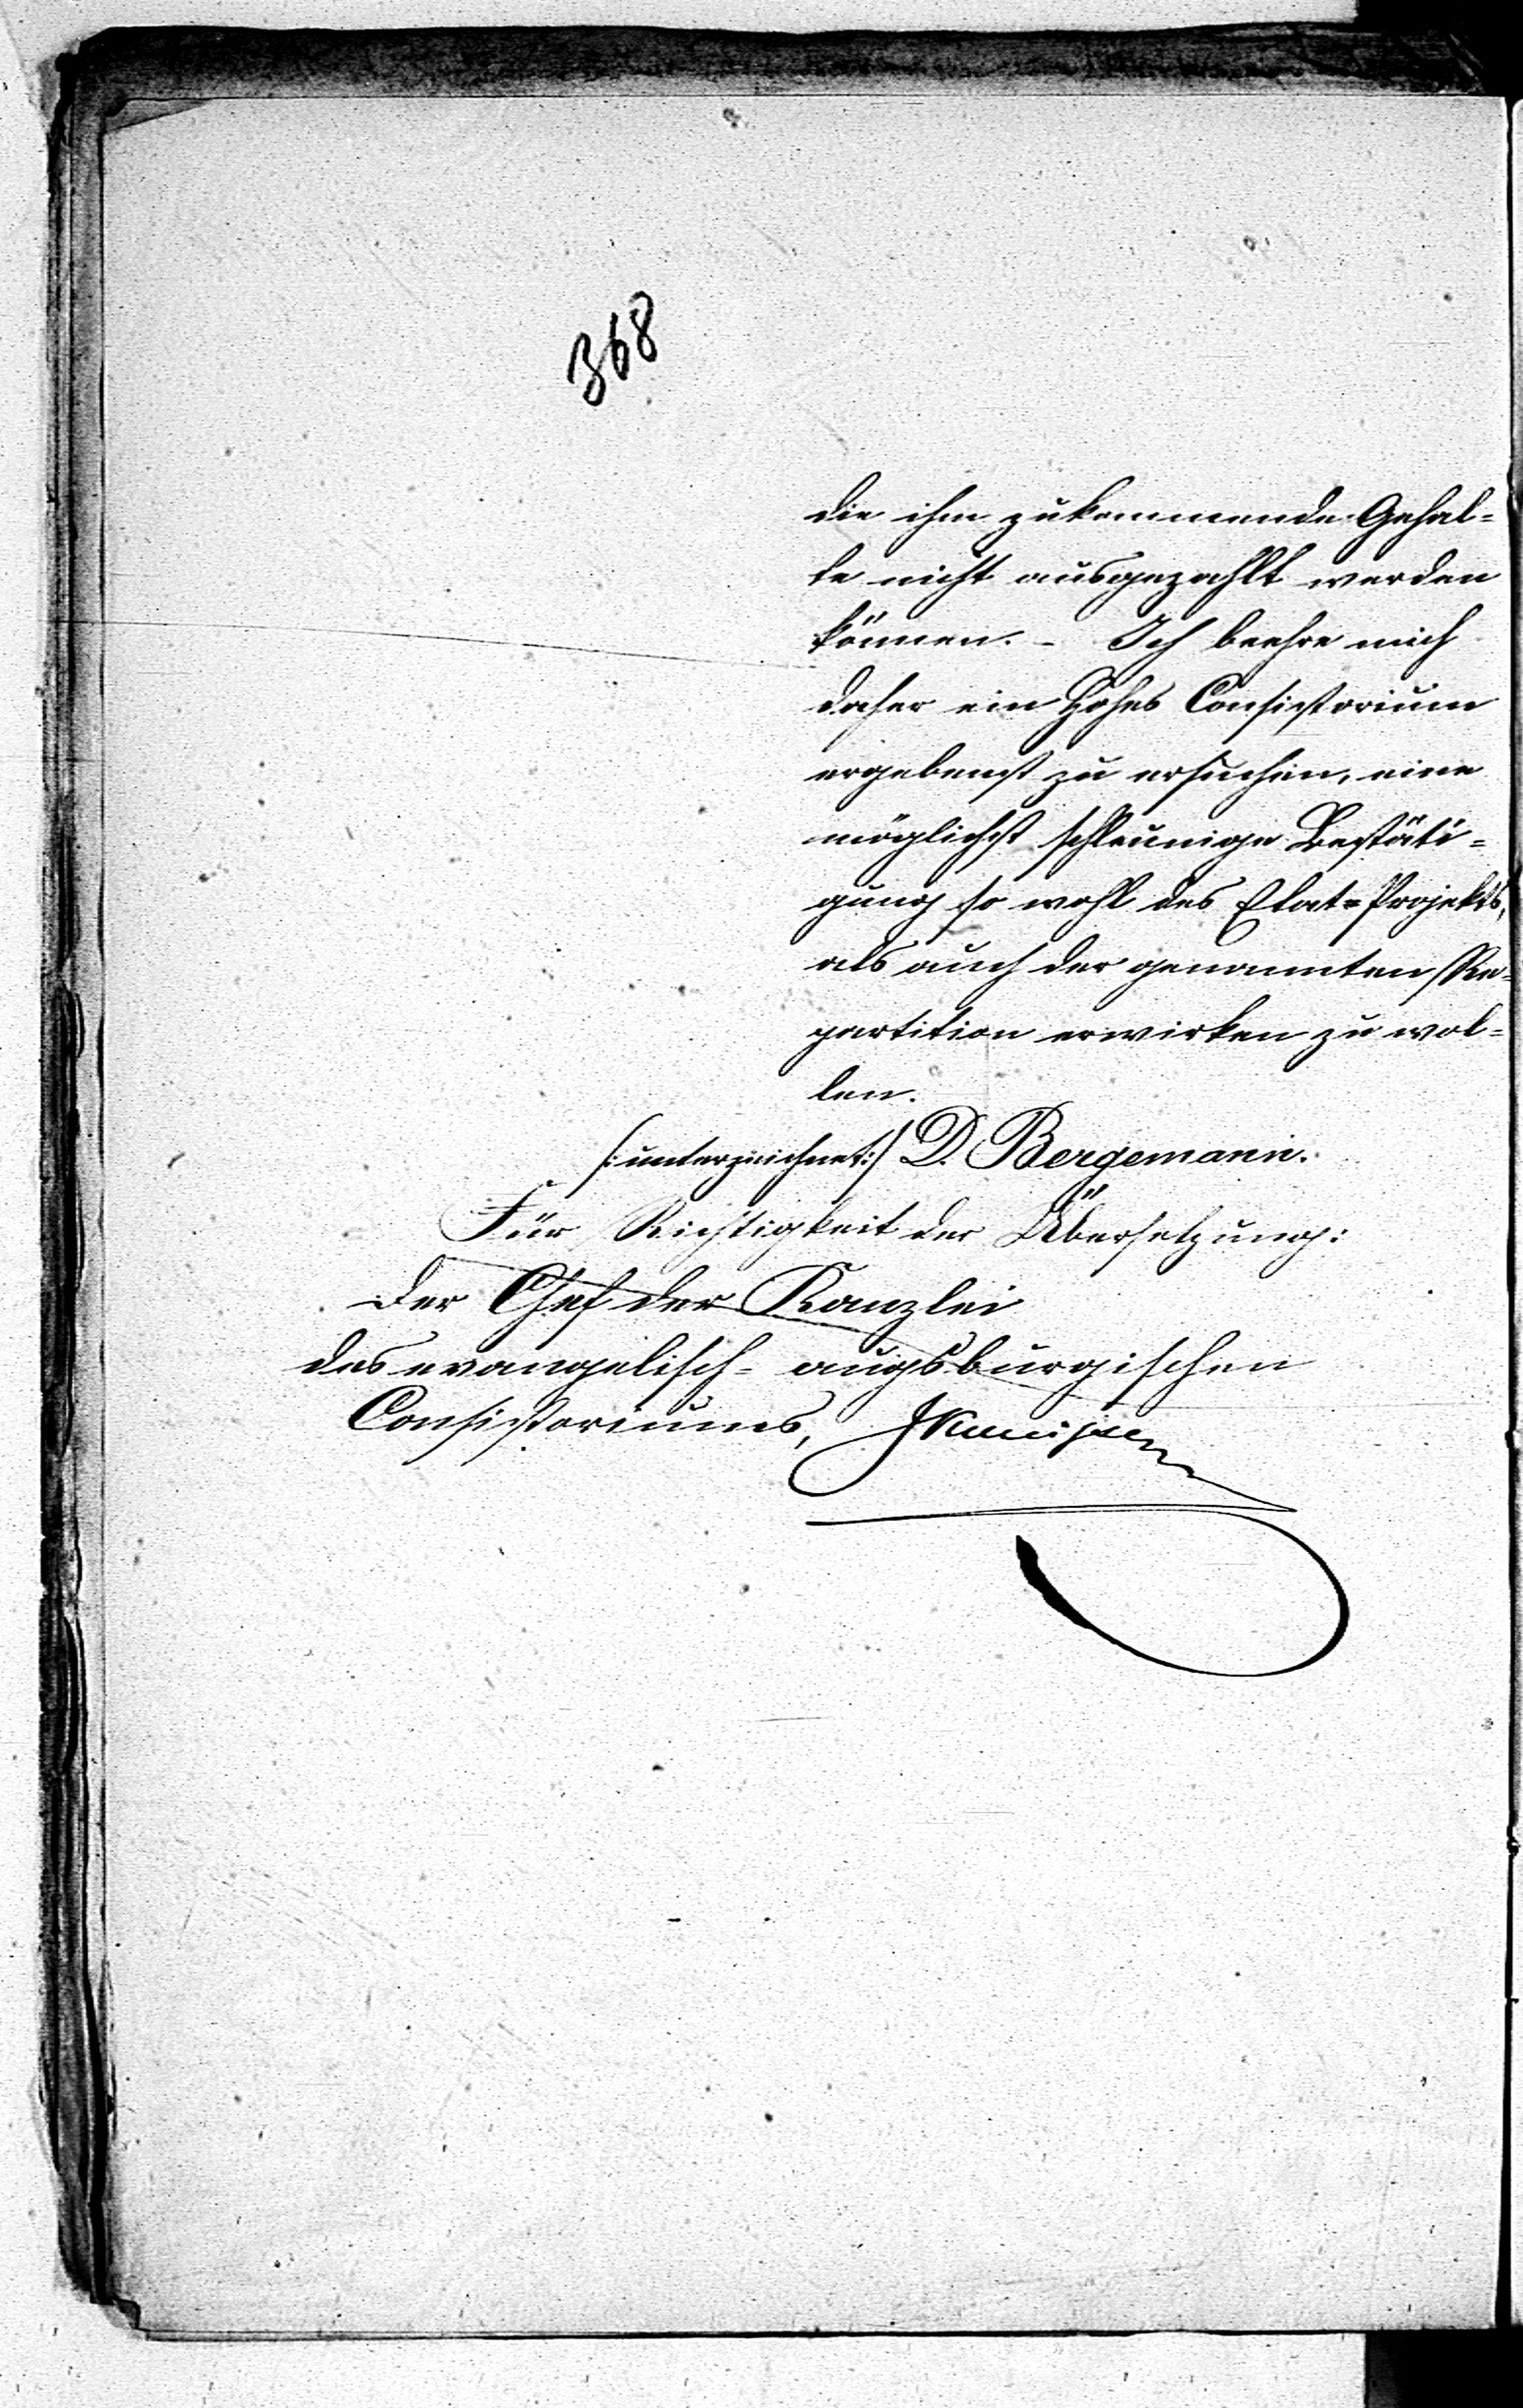 368
die ihm zukommende Gehal-
te nicht ausgezahlt werden
können. - Ich beehre mich
daher ein Hohes Consistorium
ergebenst zu ersuchen, eine
möglichst schleunige Bestäti-
gung so wohl des Etat-Projekts,
als auch der genannten Re-
partition erwirken zu wol-
len.
/:unterzeichnet:/ D. Bergemann.
Für Richtigkeit der Übersetzung:
Der Chef der Kanzlei
des evangelisch-augsburgischen
Consistoriums,